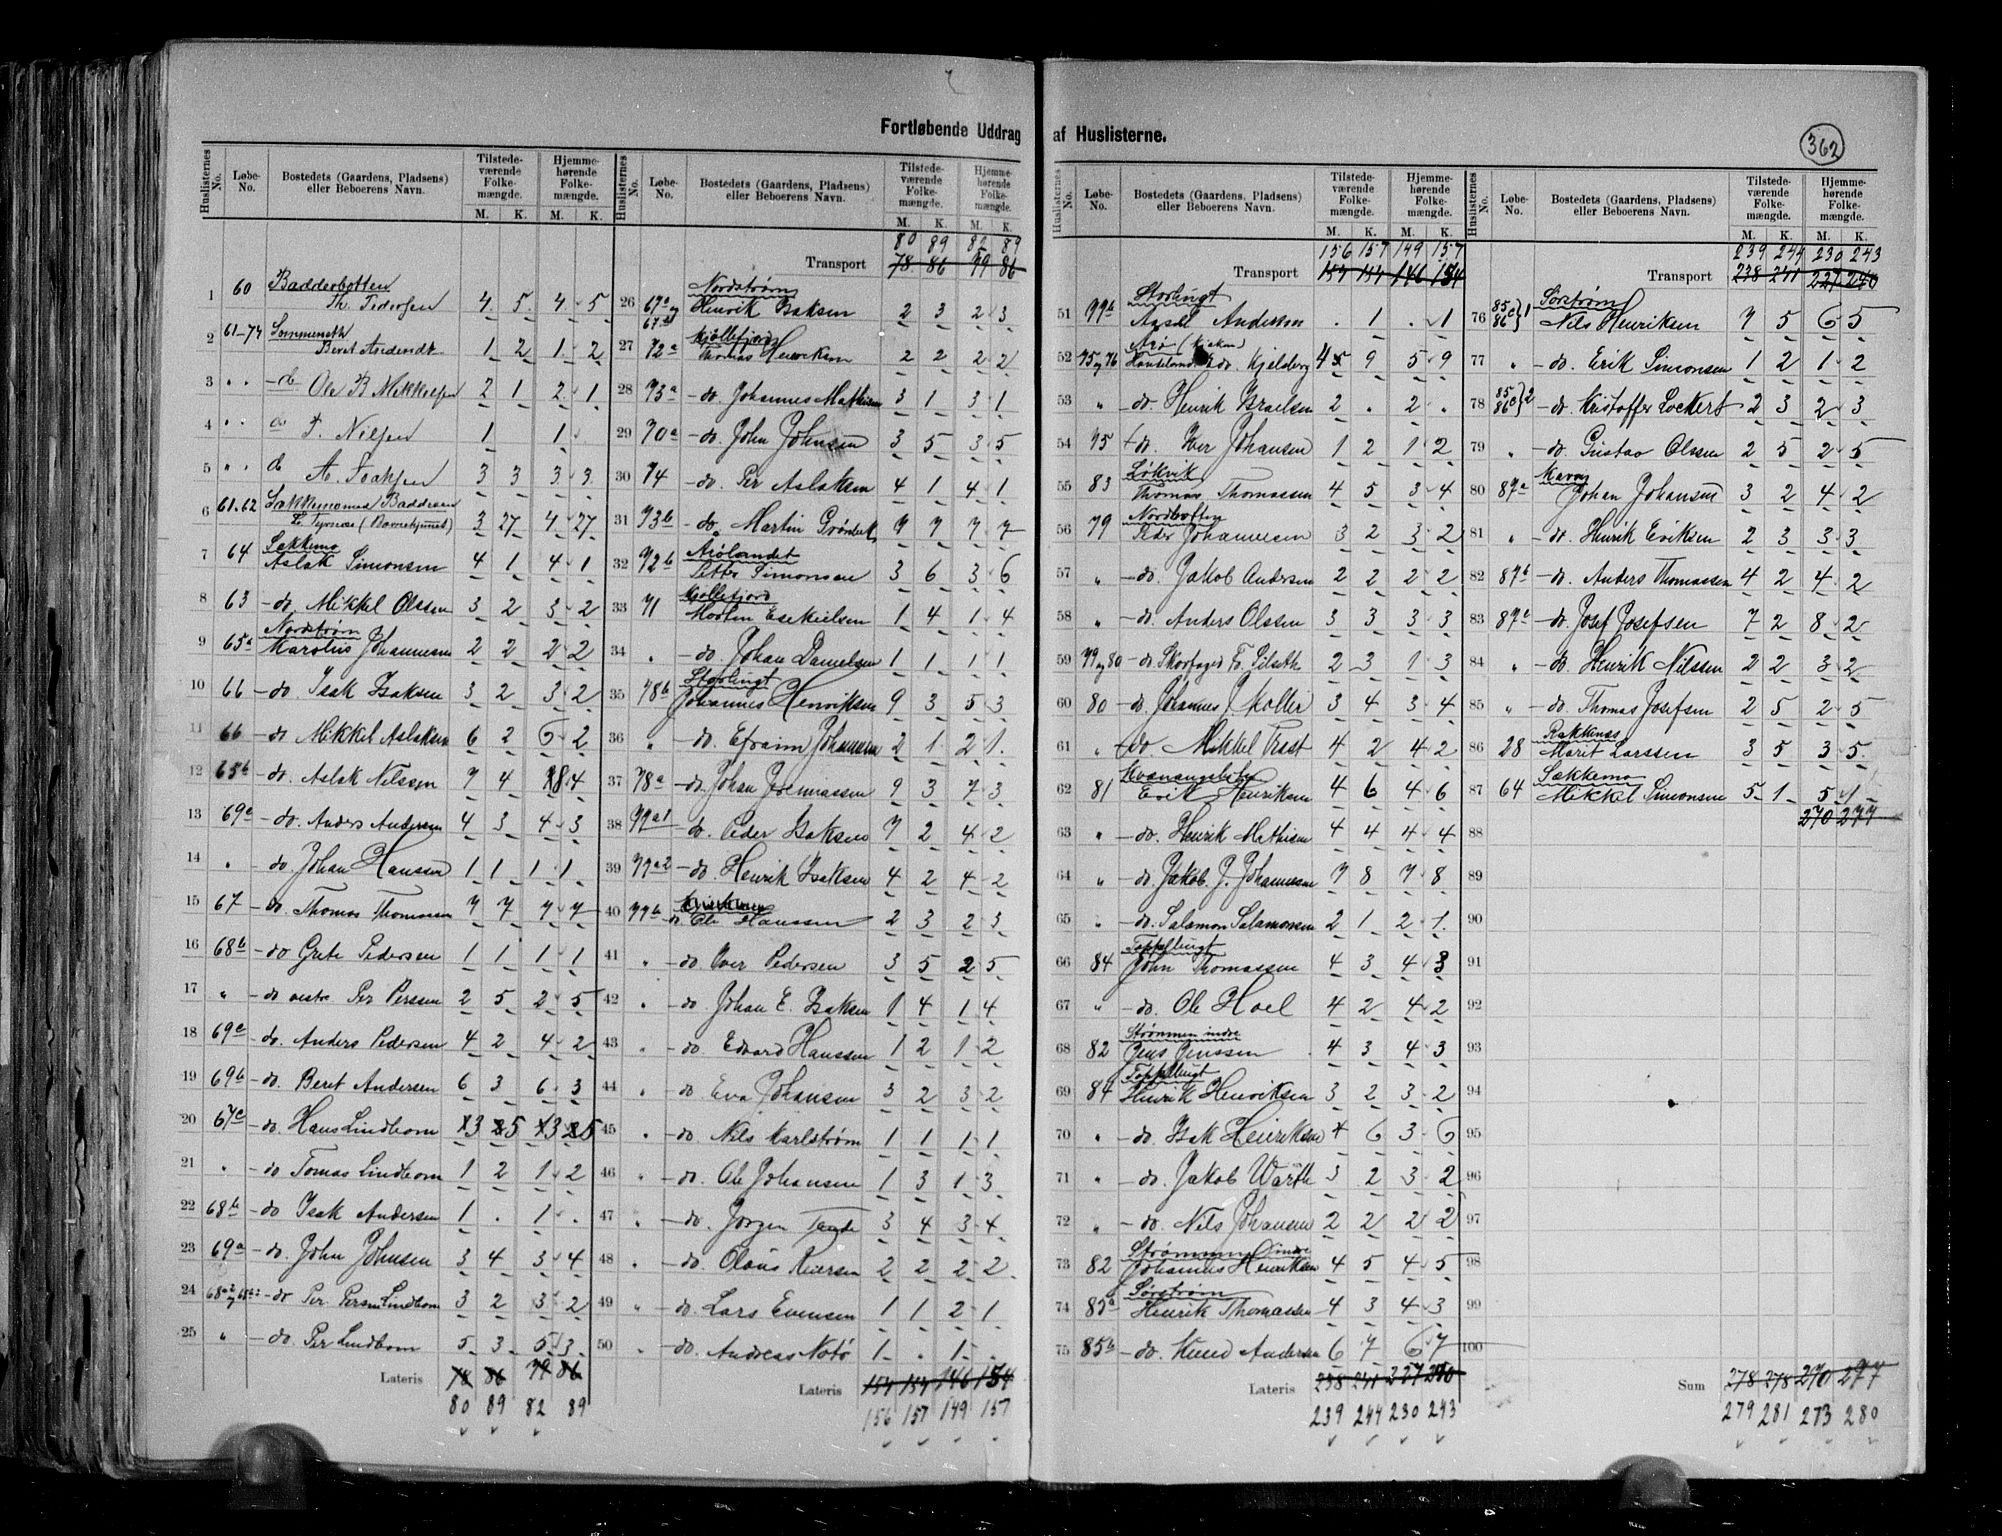 Fortløbende Uddrag af Huslisterne.
362
Huslisternes No. Løbe-No. Bostedets (Gaardens, Pladsens) eller Beboerens Navn. Tilstedeværende Folkemængde. M. K. Hjemmehørende Folkemængde. M. K.
1 60 Badderbotten
Th. Pedersen 4 5 4 5
2 61-74
Beret 1 2 1 2
3 " do Ole B Mikkelsen 2 1 2 1
4 " do Nilsen 1 1
5 " do A. Isaksen 3 3 3 3
6 61.62 Badderen
3 27 4 27
7 64 Sækkemo
Aslak Simonsen 4 1 4 1
8 63 do. Mikkel Olssen 3 2 3 2
9 65a Nordstrøm
Marolius Johannesen 2 2 2 2
10 66 do. Isak Isaksen 3 2 3 2
11 66 do Mikkel Aslaksen 6 2 6 2
12 65b do. Aslak Nilssen 7 4 8 4
13 69a do. Anders Andersen 4 3 4 3
14 " do. Johan Hanssen 1 1 1 1
15 67 do. Thomas Thomassen 7 7 7 7
16 68b do Grete Pedersen 1 1 1 1
17 " do vestre Per Perssen 2 5 2 5
18 69c do. Anders Pedersen 4 2 4 2
19 69b do. Beret Andersen 6 3 6 3
20 67c do. Hans Lindbom 3 5 3 5
21 " do Tomas Lindbom 1 2 1 2
22 68b do Isak Andersen 1 . 1 .
23 69a do. John Johnsen 3 4 3 4
24 do Per Persen Lindbom 3 2 3 2
25 " do. Per Lindbom 5 3 5 3
Lateris 78 86 79 86
80 89 82 89
80 89 82 89
Transport 78 86 79 86
26 67a og Nordstrøm
Henrik Isaksen 2 3 2 3
27 72a Kjøllefjord
Thomas Henriksen 2 2 2 2
28 73a do. Johannes Mathisen 3 1 3 1
29 70a do. John Johnsen 3 5 3 5
30 74 do. Per Aslaksen 4 1 4 1
31 73b do. Martin Grønbek 7 7 7 7
32 72b Arølandet
Petter Simonsen 3 6 3 6
33 71 Kjøllefjord
Morten Esekielsen 1 4 1 4
34 " do Johan Danielsen 1 1 1 1
35 78b Storbugt
Johannes Henriksen 9 3 5 3
36 " do. Efraim Johansen 2 1 2 1
37 78a do. Johan Jeremiassen 9 3 7 3
38 77a1 do. Peder Isaksen 7 2 4 2
39 77a2 do. Henrik Isaksen 4 2 4 2
40 77b do. Ole Hanssen 2 3 2 3
41 " do Iver Pedersen 3 5 2 5
42 " do Johan E. Isaksen 1 4 1 4
43 " do Edvard Hanssen 1 2 1 2
44 " do Eva Johansen 3 2 3 2
45 " do Nils Karlstrøm 1 1 1 1
46 " do. Ole Johansen 1 3 1 3
47 " do. Jørgen 3 4 3 4
48 " do. Olaus Iversen 2 2 2 2
49 " do. Lars Evensen 1 1 2 1
50 " do. Andreas Notø 1 . 1 .
Lateris 154 154 146 154
156 157 149 157
156 157 149 157
Transport 154 154 146 154
51 77b Storbugt
Anders . 1 . 1
52 75 og 76 Arø
Kjelsberg 4 9 5 9
53 " do. Henrik Israelsen 2 . 2 .
54 75 do. Iver Johansen 1 2 1 2
55 83 Løkvik
Thomas Thomassen 4 5 3 4
56 79 Nordbotten
Peder Johannesen 3 2 3 2
57 " do. Jakob Andersen 2 2 2 2
58 " do. Anders Olssen 3 3 3 3
59 79 og 80 do Skovfoged 2 3 1 3
60 80 do. Johannes J. Møller 3 4 3 4
61 " do Mikkel Trast 4 2 4 2
62 81 Kvænangsbotn
Erik Henriksen 4 6 4 6
63 " do. Henrik Mathisen 4 4 4 4
64 " do. Jakob. J. Johannesen 7 8 7 8
65 " do. Salamon Salamonsen 2 1 2 1
66 84 Toppelbugt
John Thomassen 4 3 4 3
67 " do. Ole Hoel 4 2 4 2
68 82 Strømmen indre
Jens Jenssen 4 3 4 3
69 84 Toppelbugt
Henrik Henriksen 3 2 3 2
70 " do. Isak Henriksen 4 6 3 6
71 " do. Jakob Warth 3 2 3 2
72 " do. Nils Johansen 2 2 2 2
73 82 Strømmen indre
Johannes Henriksen 4 5 4 5
74 85a Sørstrøm
Henrik Thomassen 4 3 4 3
75 85b do. Andersen 6 7 6 7
Lateris 238 241 227 240
239 244 230 243
239 244 230 243
Transport 238 241 227 240
76 85c 86c } 1 Sørstrøm
Nils Henriksen 7 5 6 5
77 " do. Erik Simonsen 1 2 1 2
78 85 86c } 2 do. Kristoffer Lockert 2 3 2 3
79 " do. Gustav Olssen 2 5 2 5
80 87a
Johan Johansen 3 2 4 2
81 " do. Henrik Eriksen 2 3 3 3
82 87b do. Anders Thomassen 4 2 4 2
83 87a do. Josef Josefsen 7 2 8 2
84 " do. Henrik Nilssen 2 2 3 2
85 " do. Thomas Josefsen 2 5 2 5
86 28 Rakkenæs
Marit Larssen 3 5 3 5
87 64 Sækkemo
Mikkel Simonsen 5 1 5 1
270 277
88
89
90
91
92
93
94
95
96
97
98
99
100
Sum 278 278 270 277
279 281 273 280